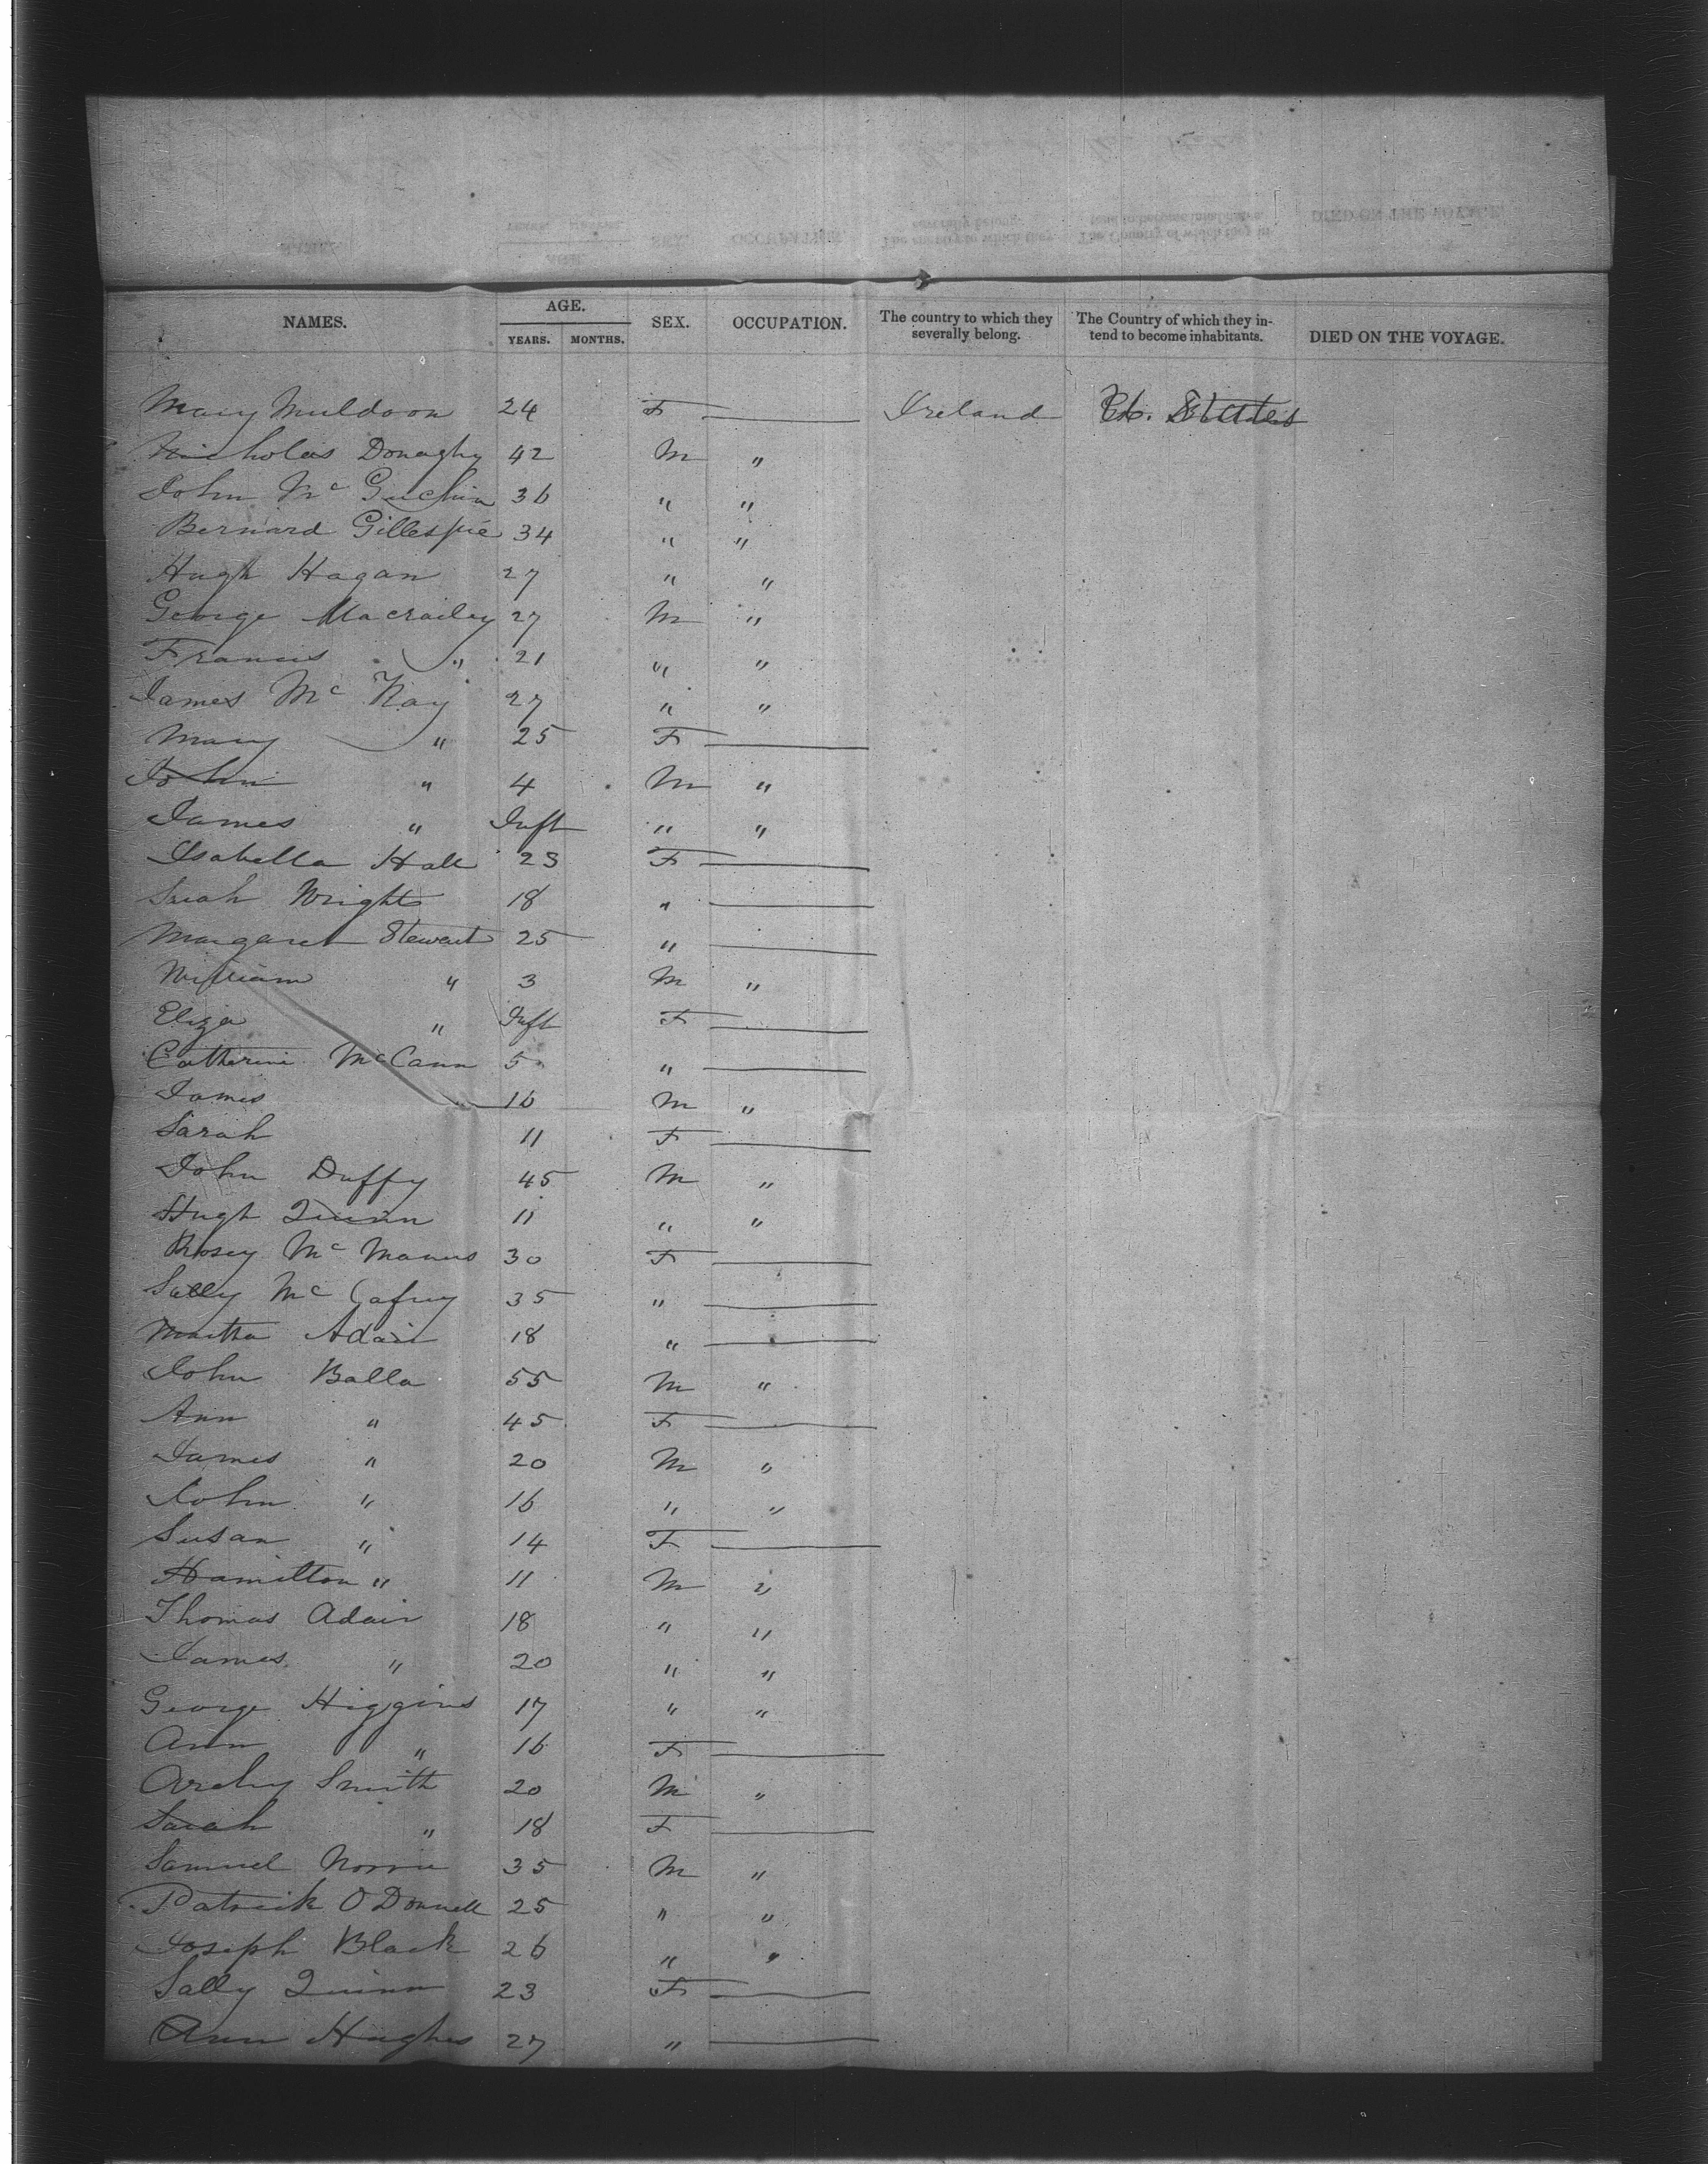 NAMES. AGE. YEARS. MONTHS. SEX. OCCUPATION. The country to which they severally belong. The Country of which they intend to become inhabitants. DIED ON THE VOYAGE.
Mary Muldoon 24 F — Ireland U. States
Nicholas Donaghy 42 M "
John Mc Guchin 36 " "
Bernard Gillespie 34 " "
Hugh Hagan 27 " "
George Macrailey 27 M "
Francis " 21 " "
James Mc Kay 27 " "
Mary " 25 F —
John " 4 M "
James " Inft " "
Isabella Hall 23 F —
Sarah Wright 18 " —
Margaret Stewart 25 " —
William " 3 M "
Eliza " Inft F —
Catherine McCann 5 " —
James 16 M "
Sarah 11 F —
John Duffy 45 M "
Hugh Quinn 11 " "
Rosey Mc Manus 30 F —
Sally Mc Cafrey 35 " —
Martha Adair 18 " —
John Balla 55 M "
Ann " 45 F —
James " 20 M "
John " 16 " "
Susan " 14 F —
Hamilton " 11 M "
Thomas Adair 18 " "
James " 20 " "
George Higgins 17 " "
Ann " 16 F —
Archy Smith 20 M "
Sarah " 18 F —
Samuel Norris 35 M "
Patrick O Donnell 25 " "
Joseph Black 26 " "
Sally Quinn 23 F —
Ann Hughes 27 " —